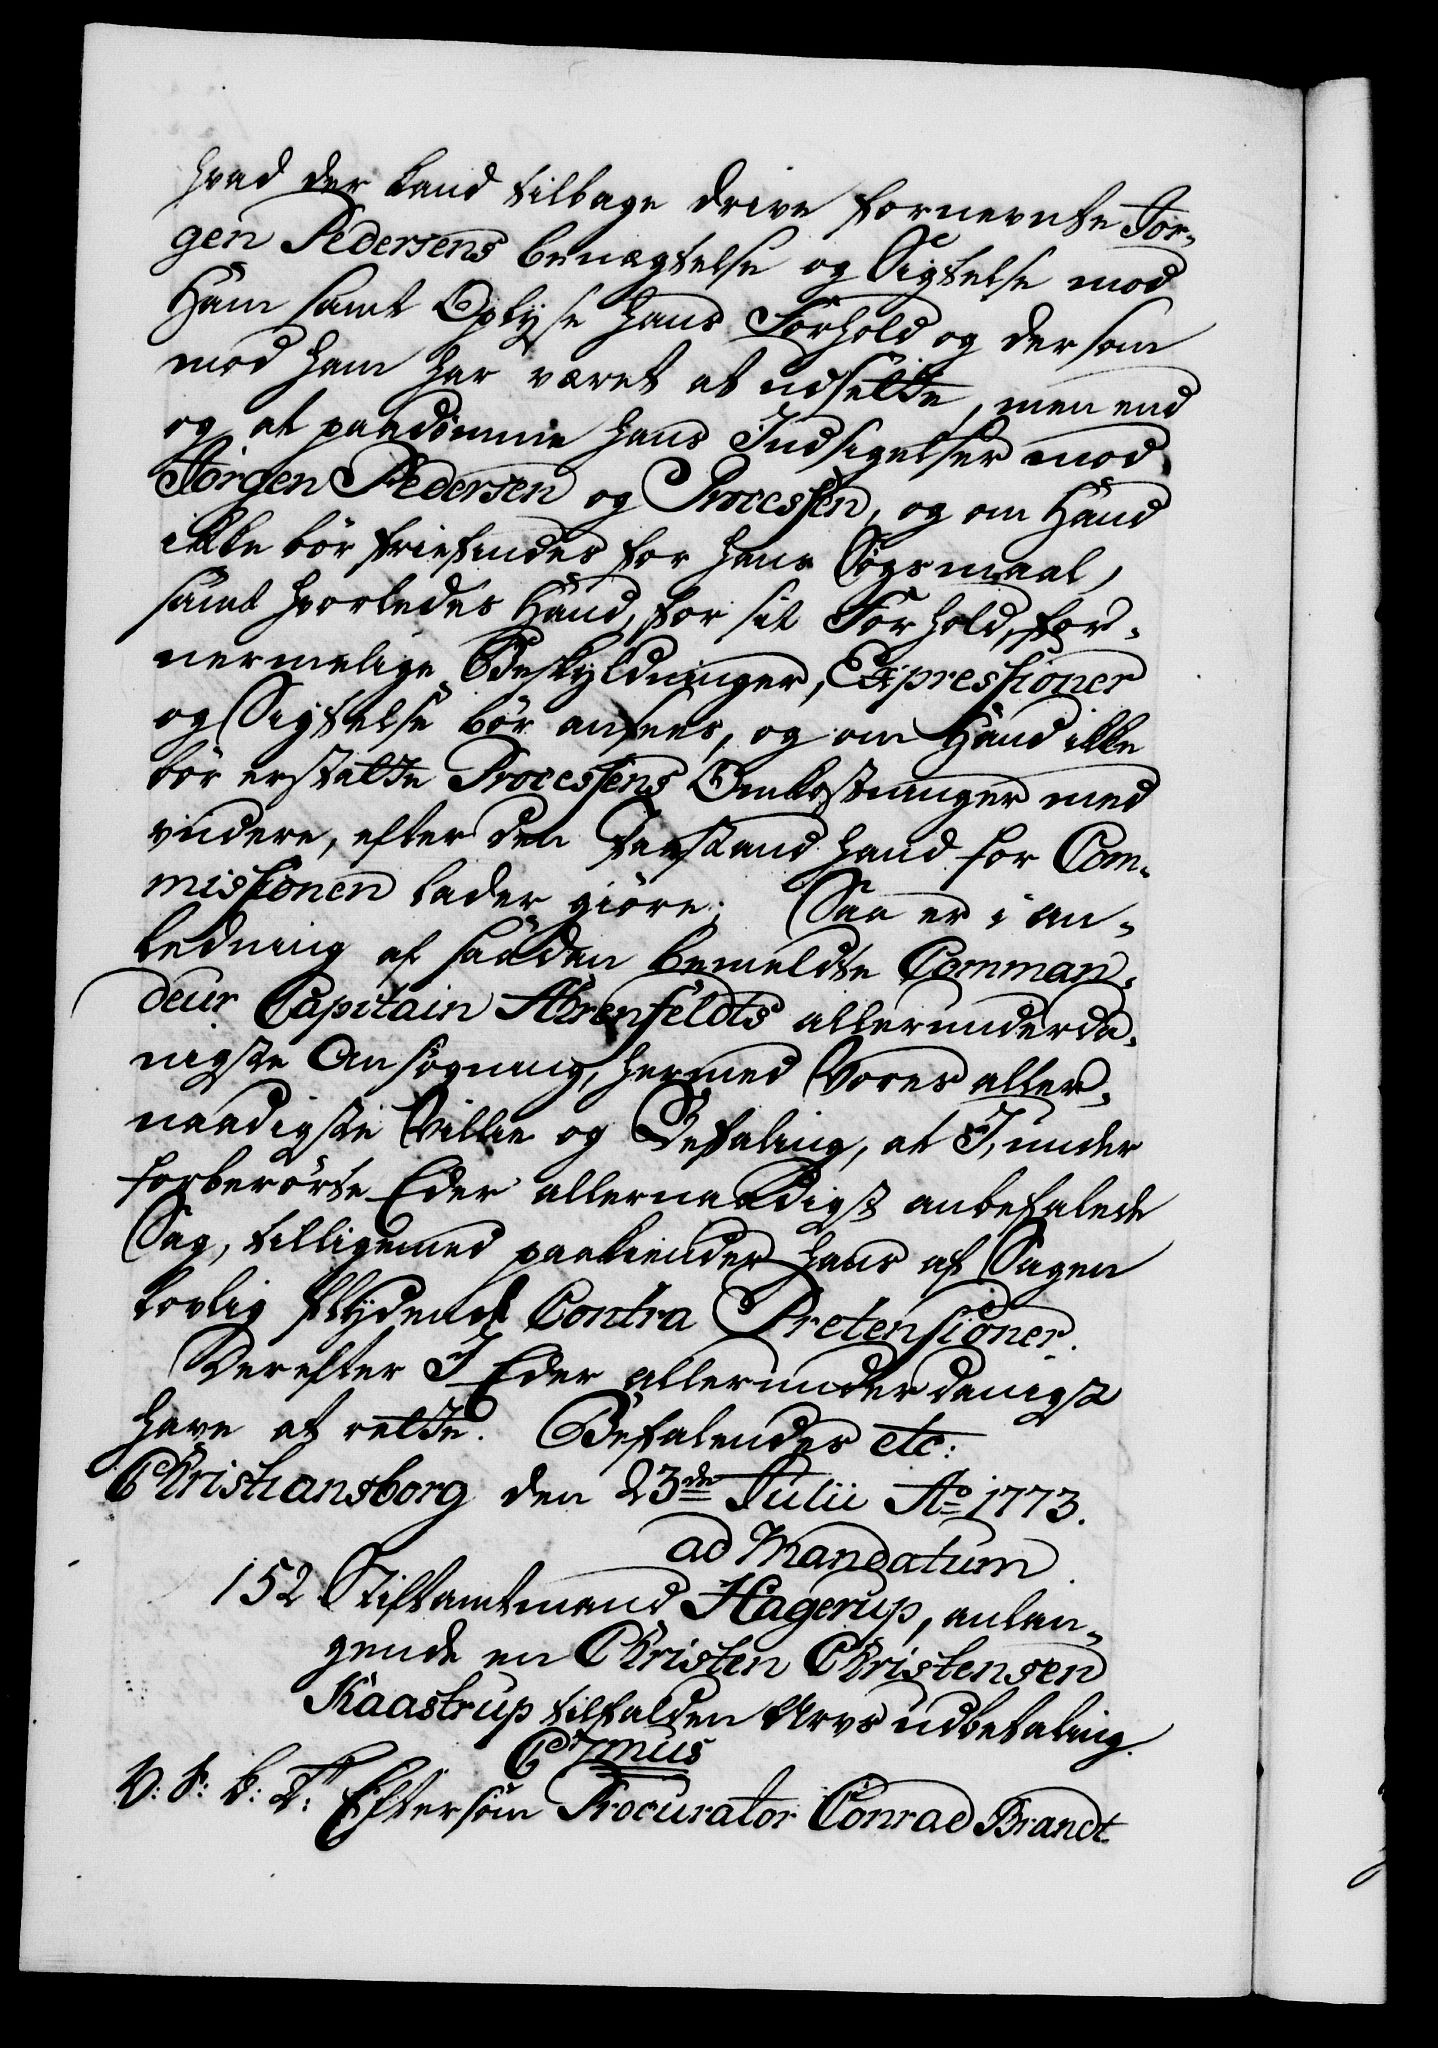 hvad der kand tilbage drive fornevnte Jør-
gen Pedersens benægtelse og Sigtelse mod
Ham samt Oplyse hans Forhold og der som
mod ham har været at udsætte, men end
og at paadömme hans Indsigelser mod
Jörgen Pedersen og Processen, og om Hand
ikke bör friefindes for hans Søgsmaal,
samt hvorledes Hand, for sit Forhold, for-
nermelige Beskyldninger, Expressioner
og Sigtelse bör ansees, og om Hand ikke
bör erstatte Processens Omkostninger med
videre, efter den Paastand hand for Com-
missionen lader giöre; Saa er i an-
ledning af saadan bemeldte Comman-
deur Capitain Ahrenfeldts allerunderda-
nigste Ansøgning, hermed Vores aller-
naadigste Villie og Befaling, at I, under
forberørte Eder allernaadigst anbefalede
Sag, tilligemed paakiender hans af Sagen
lovlig flydende Contra Pretensioner.
Derefter I Eder allerunderdanigst
have at rette. Befalendes etc:
Christiansborg den 23de Julii Ao 1773.
ad Mandatum
152 Stiftamtmand Hagerup, anlan-
gende en Christen Christensen
Kaastrup tilfalden Arvs udbetaling.
C 7mus
V: S: b: T: Eftersom Procurator Conrad Brandt